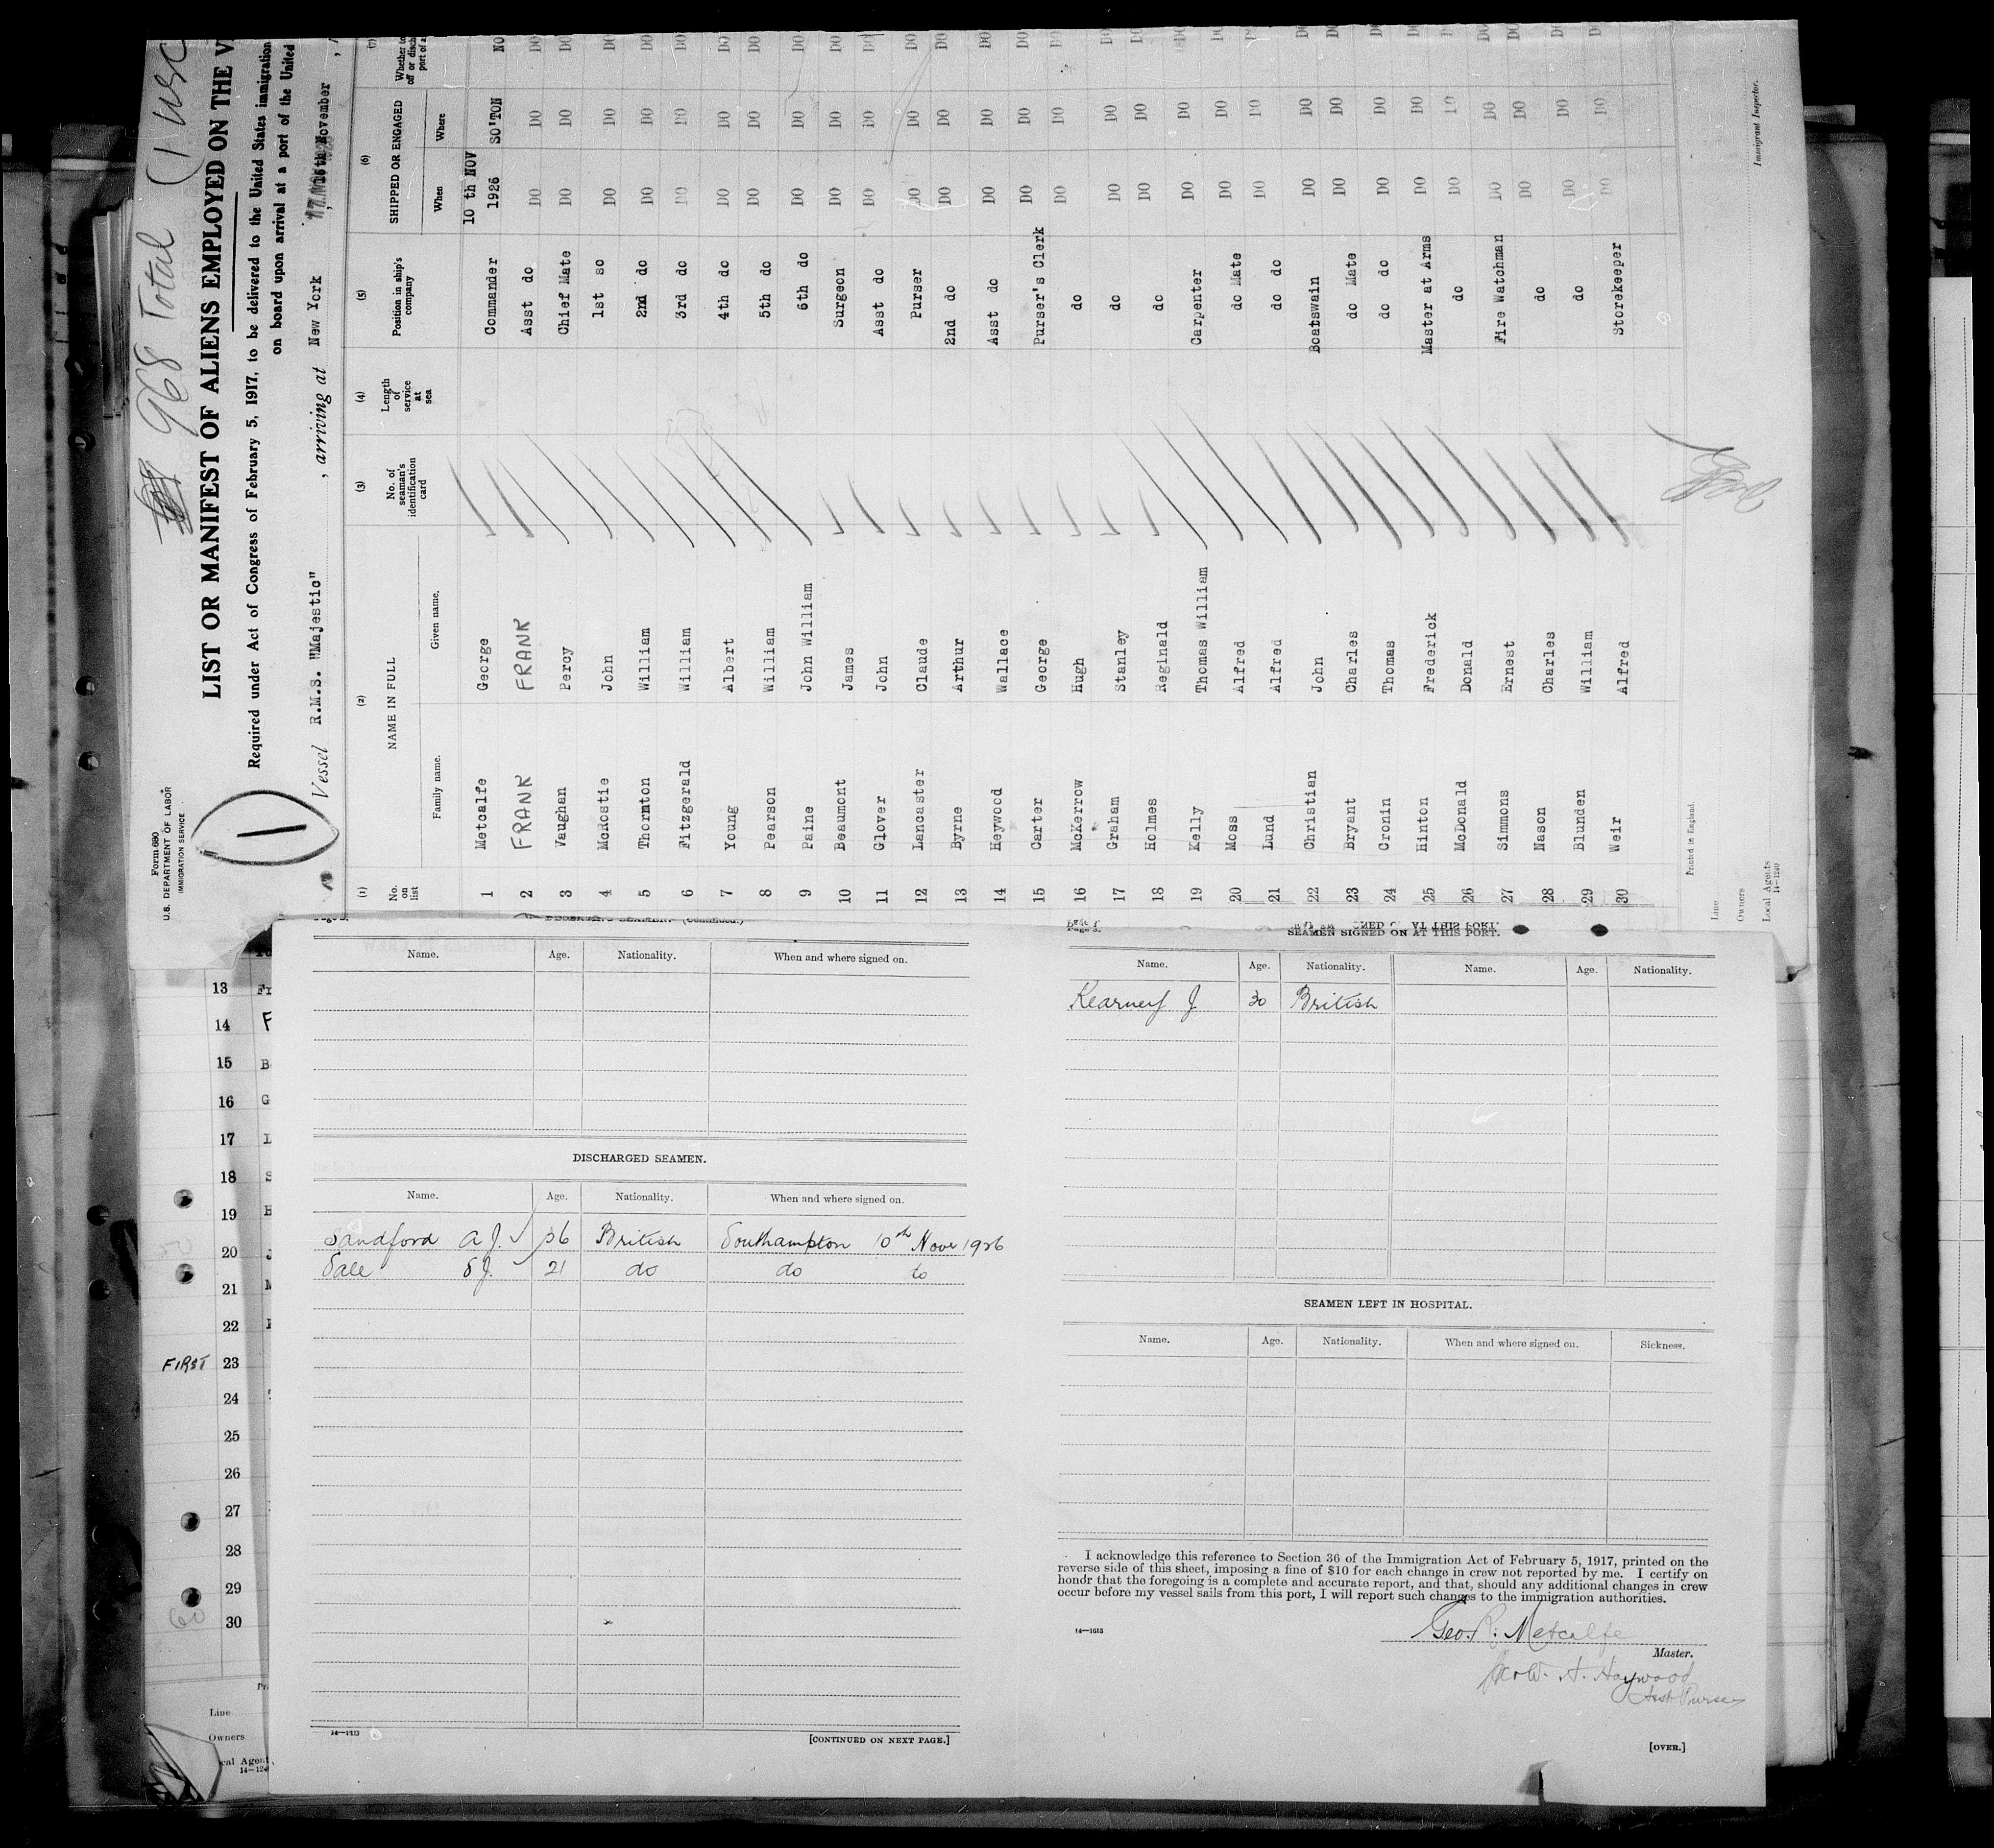 968 Total (1 USC
Form 680
U.S. DEPARTMENT OF LABOR
IMMIGRATION SERVICE
1
LIST OR MANIFEST OF ALIENS EMPLOYED ON THE V
Required under Act of Congress of February 5, 1917, to be delivered to the United States immigration
on board upon arrival at a port of the United
Vessel R.M.S. "Majestic", arriving at New York, November
(1) (2) (3) (4) (5) (6) (7)
No. on list NAME IN FULL No. of seaman's identification card Length of service at sea Position in ship's company SHIPPED OR ENGAGED
Family name. Given name. When Where
10 th NOV
1 Metcalfe George Commander 1926 SO'TON NO
2 FRANK FRANK Asst do DO DO DO
3 Vaughan Percy Chief Mate DO DO DO
4 McRostie John 1st so DO DO DO
5 Thornton William 2nd do DO DO DO
6 Fitzgerald William 3rd do DO DO DO
7 Young Albert 4th do DO DO DO
8 Pearson William 5th do DO DO DO
9 Paine John William 6th do DO DO DO
10 Beaumont James Surgeon DO DO DO
11 Glover John Asst do DO DO DO
12 Lancaster Claude Purser DO DO DO
13 Byrne Arthur 2nd do DO DO DO
14 Heywood Wallace Asst do DO DO DO
15 Carter George Purser's Clerk DO DO DO
16 McKerrow Hugh do DO DO DO
17 Graham Stanley do DO DO DO
18 Holmes Reginald do DO DO DO
19 Kelly Thomas William Carpenter DO DO DO
20 Moss Alfred do Mate DO DO DO
21 Lund Alfred do do DO DO DO
22 Christian John Boatswain DO DO DO
23 Bryant Charles do Mate DO DO DO
24 Cronin Thomas do do DO DO DO
25 Hinton Frederick Master at Arms DO DO DO
26 McDonald Donald do DO DO DO
27 Simmons Ernest Fire Watchman DO DO DO
28 Nason Charles do DO DO DO
29 Blunden William do DO DO DO
30 Weir Alfred Storekeeper DO DO DO
Printed in England.
Line
Owners
Local Agents
14—1240
Immigrant Inspector.
13 Fr
14 F
15 B
16 G
17 L
18 S
19 H
20 J
21 M
22
FIRST 23
24
25
26
27
28
29
30
60
Line
Owners
cal Agent
Name. Age. Nationality. When and where signed on.
DISCHARGED SEAMEN.
Name. Age. Nationality. When and where signed on.
Sandford A J. 36 British Southampton 10th Nov 1926
Sale S J. 21 do do to
14—1613
[CONTINUED ON NEXT PAGE.]
SEAMEN SIGNED ON AT THIS PORT.
Name. Age. Nationality. Name. Age. Nationality.
Kearney J 30 British
SEAMEN LEFT IN HOSPITAL.
Name. Age. Nationality. When and where signed on. Sickness.
I acknowledge this reference to Section 36 of the Immigration Act of February 5, 1917, printed on the
reverse side of this sheet, imposing a fine of $10 for each change in crew not reported by me. I certify on
honor that the foregoing is a complete and accurate report, and that, should any additional changes in crew
occur before my vessel sails from this port, I will report such changes to the immigration authorities.
14—1613
Geo. R. Metcalfe
Master.
A. Haywood
Asst Purser
[OVER.]